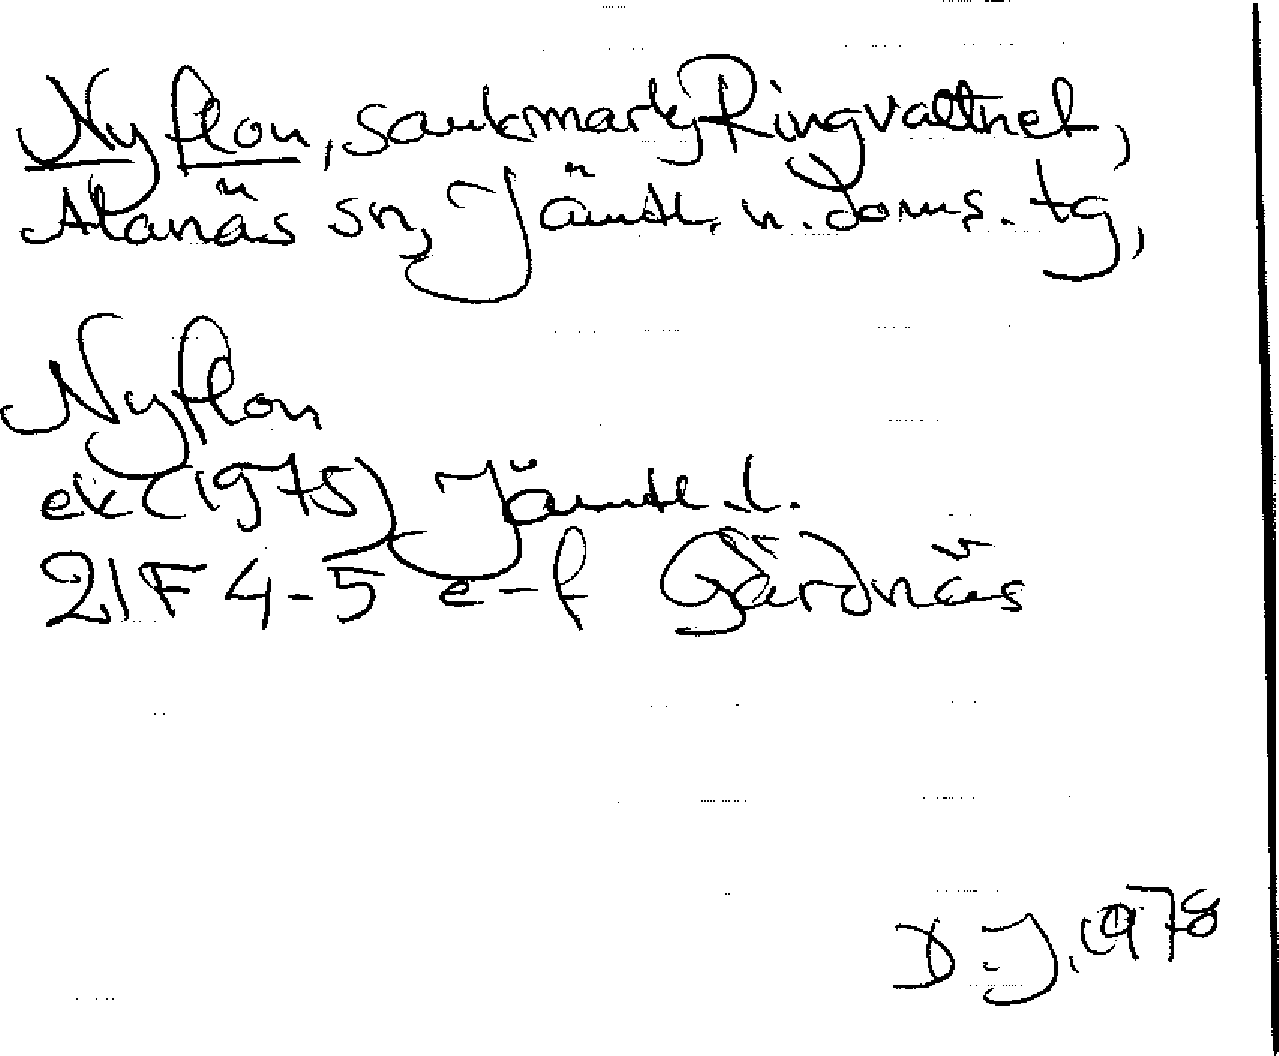 Nyflon, sankmark, Ringvattnet,
Alanäs sn, Jämtl. n. doms. tg,
Nyflon
ek (1975) Jämtl. l.
21F 4-5 e-f Gärdnäs
D.J. 1978